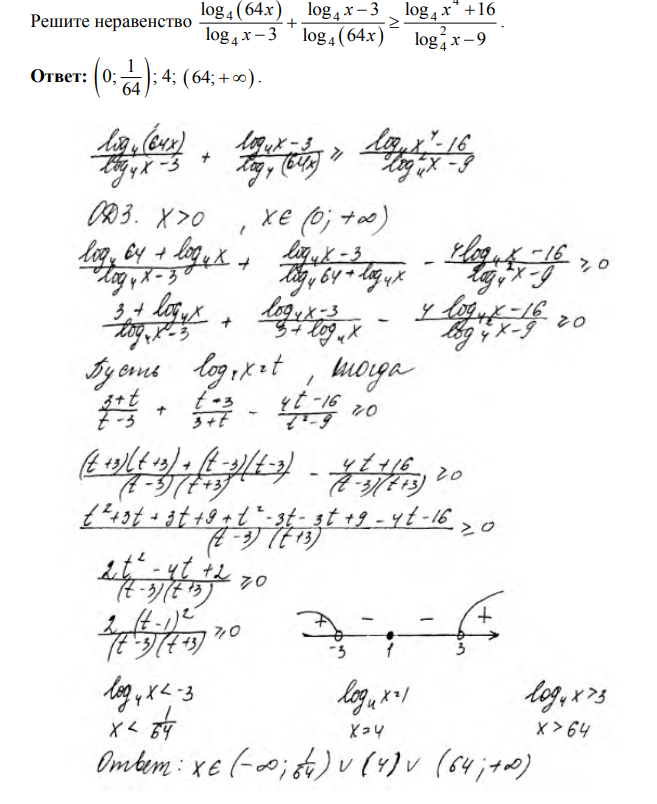 Решите неравенство log₄(64x)/(log₄x−3) + (log₄x−3)/log₄(64x) ≥ (log₄x⁴+16)/(log₄²x−9).
Ответ: (0; 1/64); 4; (64; +∞).
log₄(64x)/(log₄x−3) + (log₄x−3)/log₄(64x) ≥ (log₄x⁴−16)/(log₄²x−9)
ОДЗ. x>0 , x∈(0; +∞)
(log₄64+log₄x)/(log₄x−3) + (log₄x−3)/(log₄64+log₄x) − (4log₄x−16)/(log₄²x−9) ≥0
(3+log₄x)/(log₄x−3) + (log₄x−3)/(3+log₄x) − (4log₄x−16)/(log₄²x−9) ≥0
Пусть log₄x=t , тогда
(3+t)/(t−3) + (t−3)/(3+t) − (4t−16)/(t²−9) ≥0
((t+3)(t+3)+(t−3)(t−3))/((t−3)(t+3)) − (4t+16)/((t−3)(t+3)) ≥0
(t²+3t+3t+9+t²−3t−3t+9−4t−16)/((t−3)(t+3)) ≥0
(2t²−4t+2)/((t−3)(t+3)) ≥0
2(t−1)²/((t−3)(t+3)) ≥0 + − − +
−3 1 3
log₄x<−3 log₄x=1 log₄x>3
x<1/64 x=4 x>64
Ответ: x∈(−∞; 1/64)∪(4)∪(64;+∞)